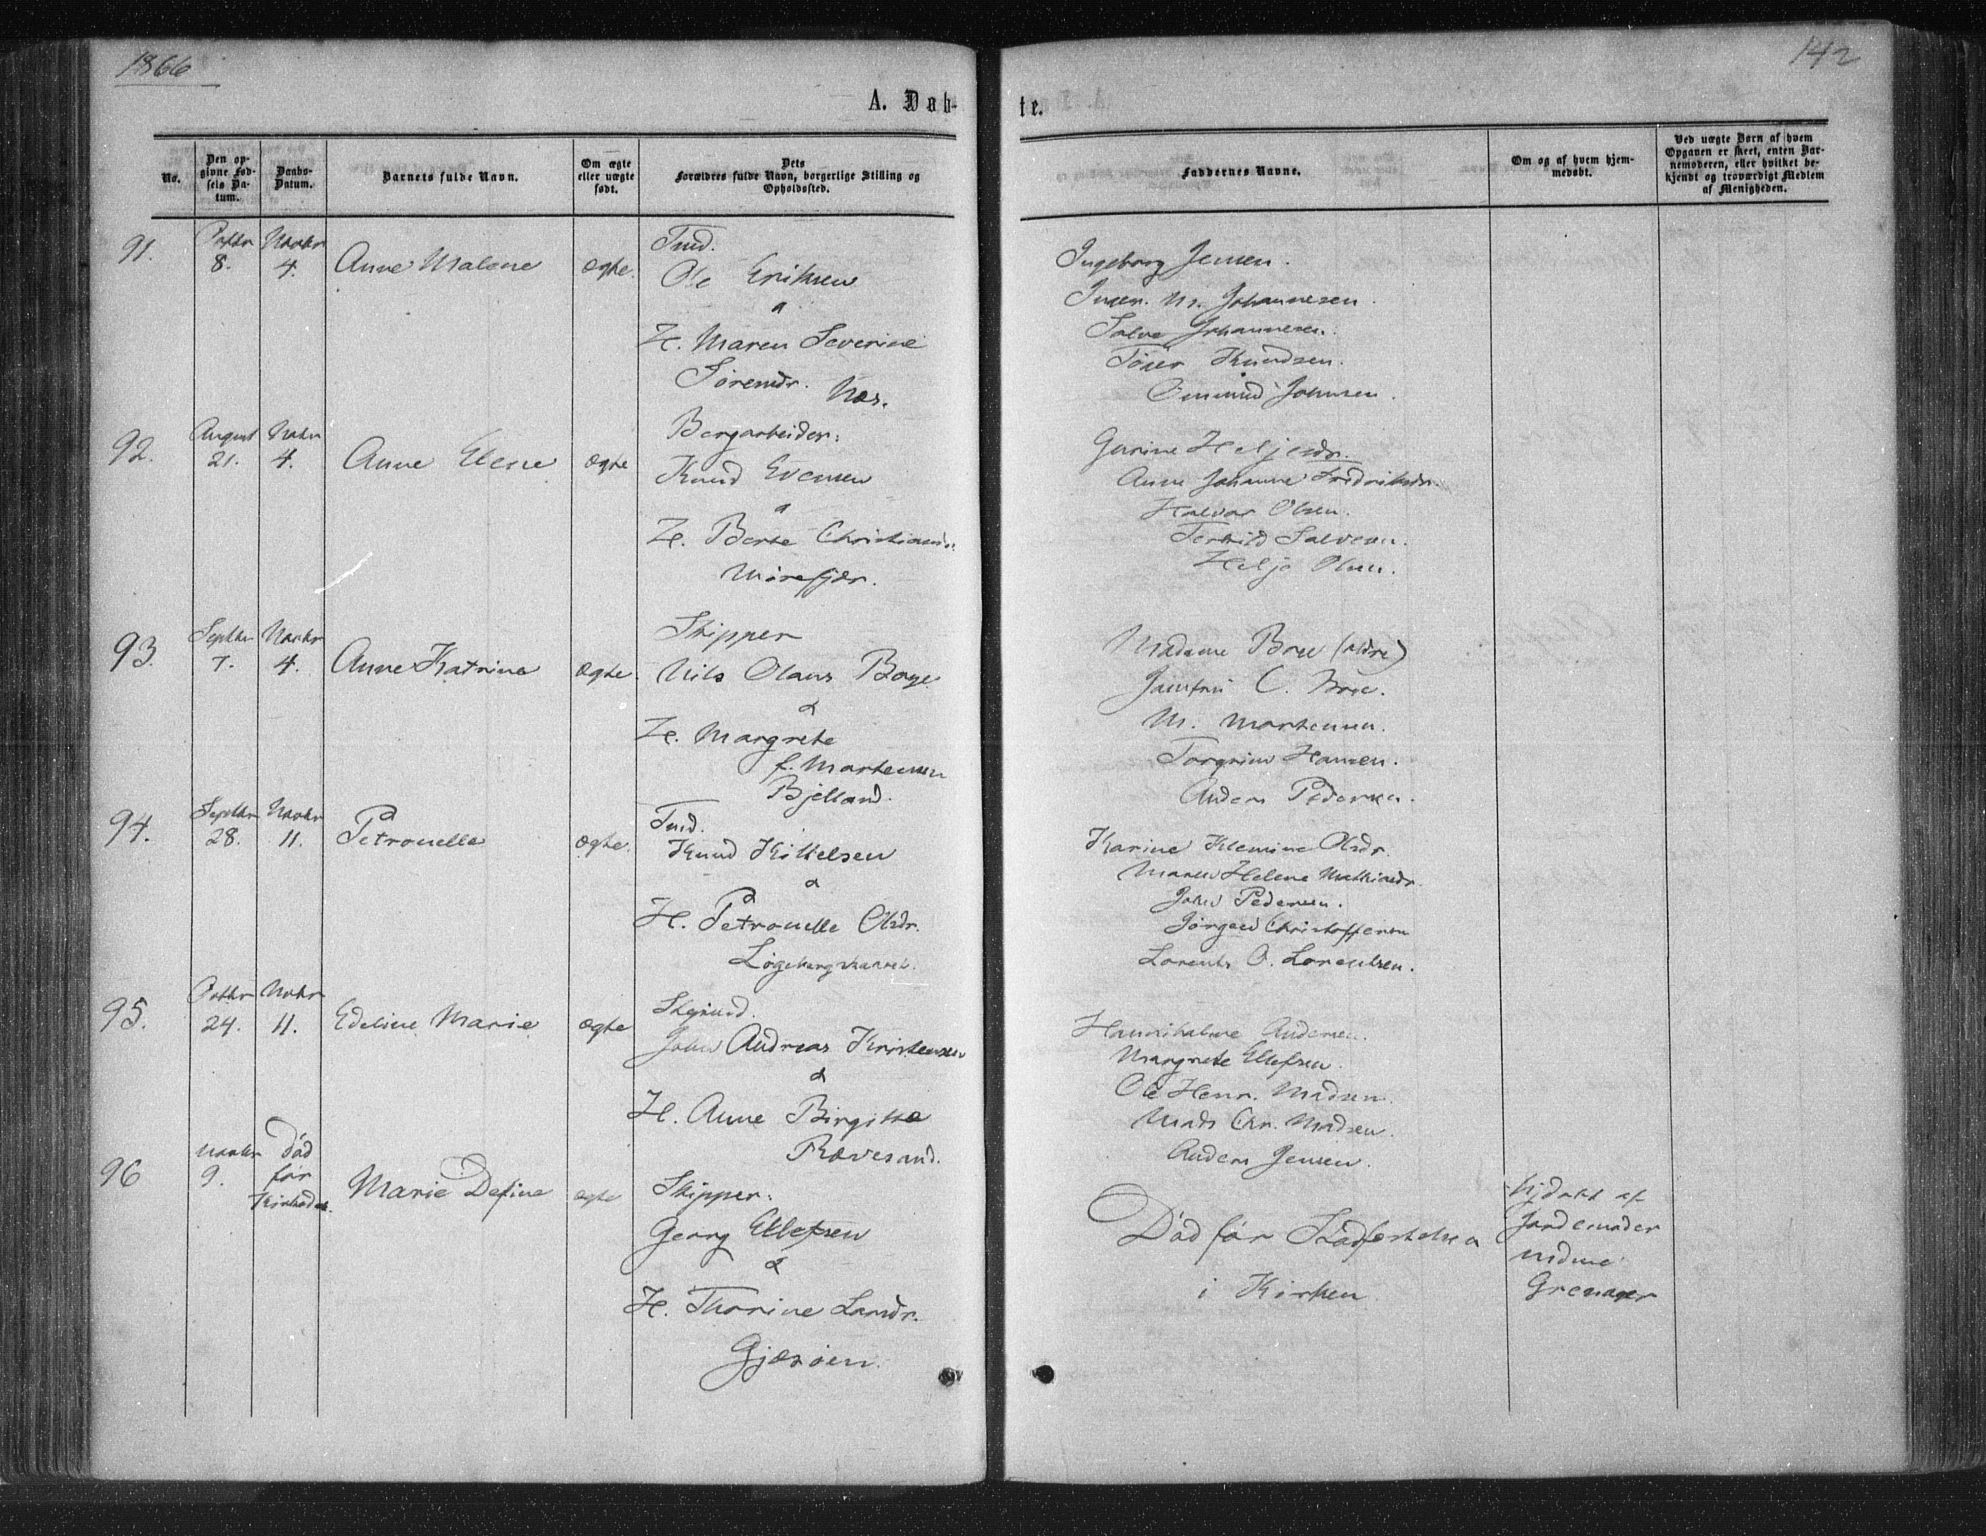 1866
142
A. Døb-
te.
No.
Den op-
givne Fød-
sels Da-
tum.
Daabs-
Datum.
Barnets fulde Navn.
Om ægte
eller uægte
født.
Dets
Forældres fulde Navn, borgerlige Stilling og
Opholdssted.
Faddernes Navne.
Om og af hvem hjem-
medøbt.
Ved uægte Børn af hvem
Opgaven er skeet, enten Bar-
nemoderen, eller hvilket be-
kjendt og troværdigt Medlem
af Menigheden.
91.
Octbr
8.
Novbr
4.
Anne Malene
ægte.
Tmd.
Ole Eriksen
&
H. Maren Severine
Sørensdr.
Næs.
Ingeborg Jensen.
Inger M. Johannesen.
Salve Johannesen.
Knudsen.
Johnsen.
92.
August
21.
Novbr
4.
Anne Elene
ægte
Bergarbeider:
Knud Evensen
&
H. Berte Christiansdr.
Mørefjær.
Gurine Heljesdr.
Anne Johanne Fredriksdr.
Halvor Olsen.
Terkild Salvesen.
Helje Olsen.
93.
Septbr
7.
Novbr
4.
Anne Katrine
ægte.
Skipper
Nils Olaus Boye
&
H. Margrete
f. Martensen
Bjelland.
Madame Boye (ældre)
Jomfru C. Boye.
M. Martensen.
Torgrim Hansen.
Anders Pedersen.
94.
Septbr
28.
Novbr
11.
Petronelle
ægte.
Tmd.
Knud Kittelsen
&
H. Petronelle Olsdr.
Karine Klemine Olsdr.
Maren Helene Mathiasdr.
John Pedersen.
Jørgen Christoffersen
Lorents O. Lorentsen.
95.
Octbr
24.
Novbr
11.
Edeline Marie
ægte
Styrmd.
John Andreas Kristensen
&
H. Anne Birgitte
Rævesand.
Hannibaline Andersen.
Margrete Ellefsen.
Ole Henr. Madsen.
Mads Chr. Madsen.
Anders Jensen.
96
Novbr
9.
Død
før
Kirkedaab.
Marie Define
ægte
Skipper:
Georg Ellefsen
&
H. Thorine Larsdr.
Gjæsøen.
Død før Stadfæstelsen
i Kirken.
Hjdøbt af
Jordemoder
Madme
Grenager